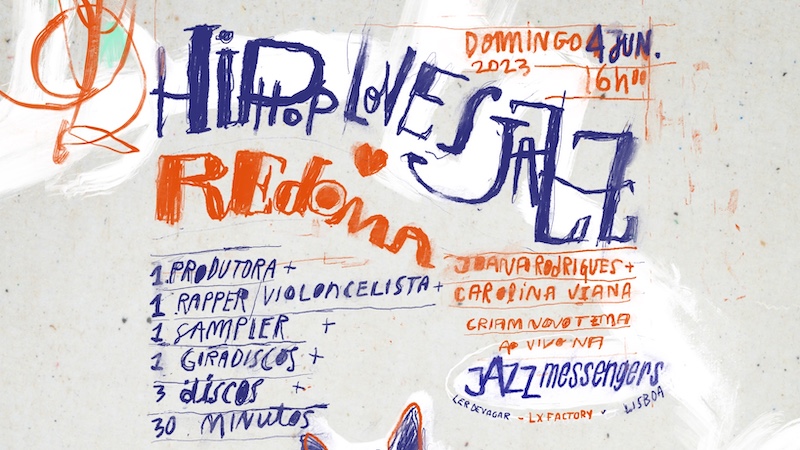 DOMINGO 4 JUN.
2023 16h00
HiPHOP LOVES JAZZ
REdOMA
1 PRODUTORA +
1 RAPPER/VIOLONCELISTA +
1 SAMPLER +
1 GIRADISCOS +
3 discos +
30 MINUTOS
JOANA RODRIGUES +
CAROLINA VIANA
CRIAM NOVO TEMA
AO VIVO NA
JAZZ messengers
LER DEVAGAR - LX FACTORY, LISBOA